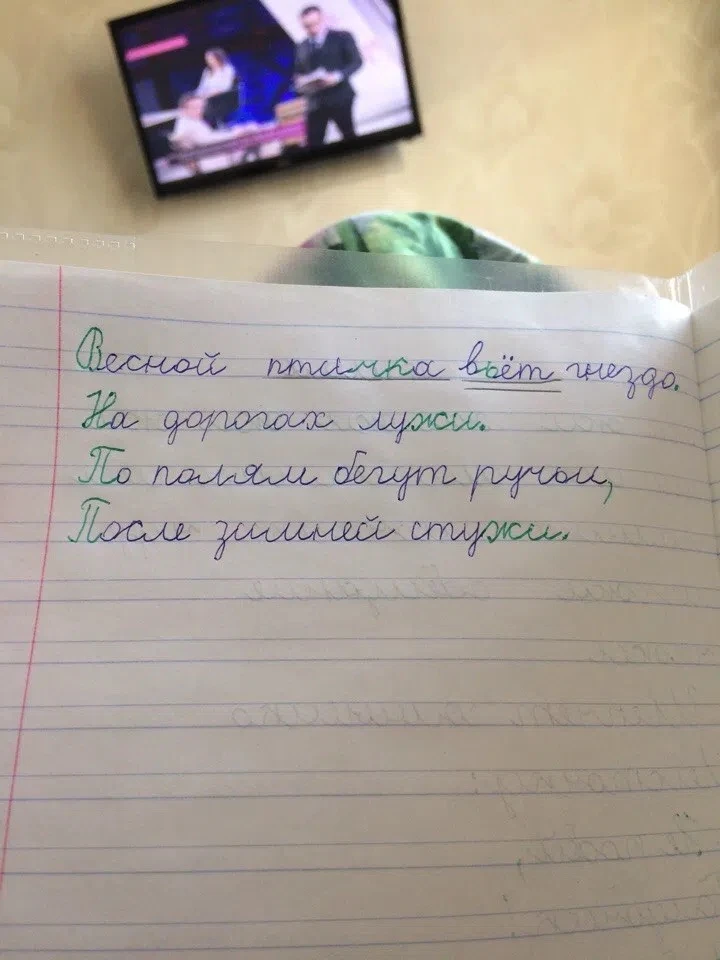 Весной птичка вьёт гнездо.
На дорогах лужи.
По полям бегут ручьи,
После зимней стужи.